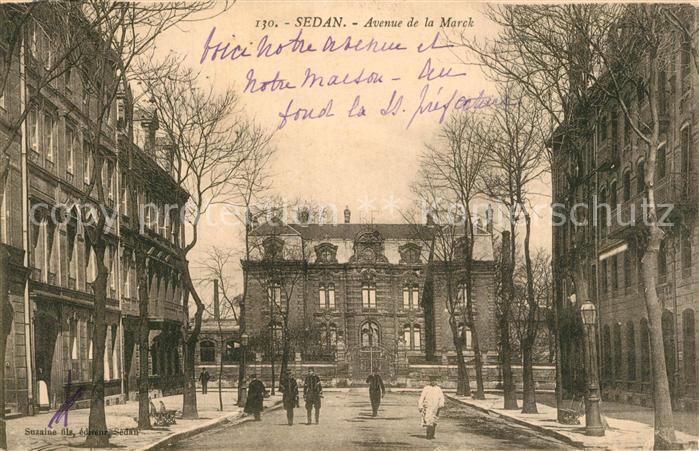 130. - SEDAN. - Avenue de la Marck
voici notre avenue et
notre maison - au
fond la S. préfecture
copyright Kopierschutz
Suzaine fils, éditeur, Sedan